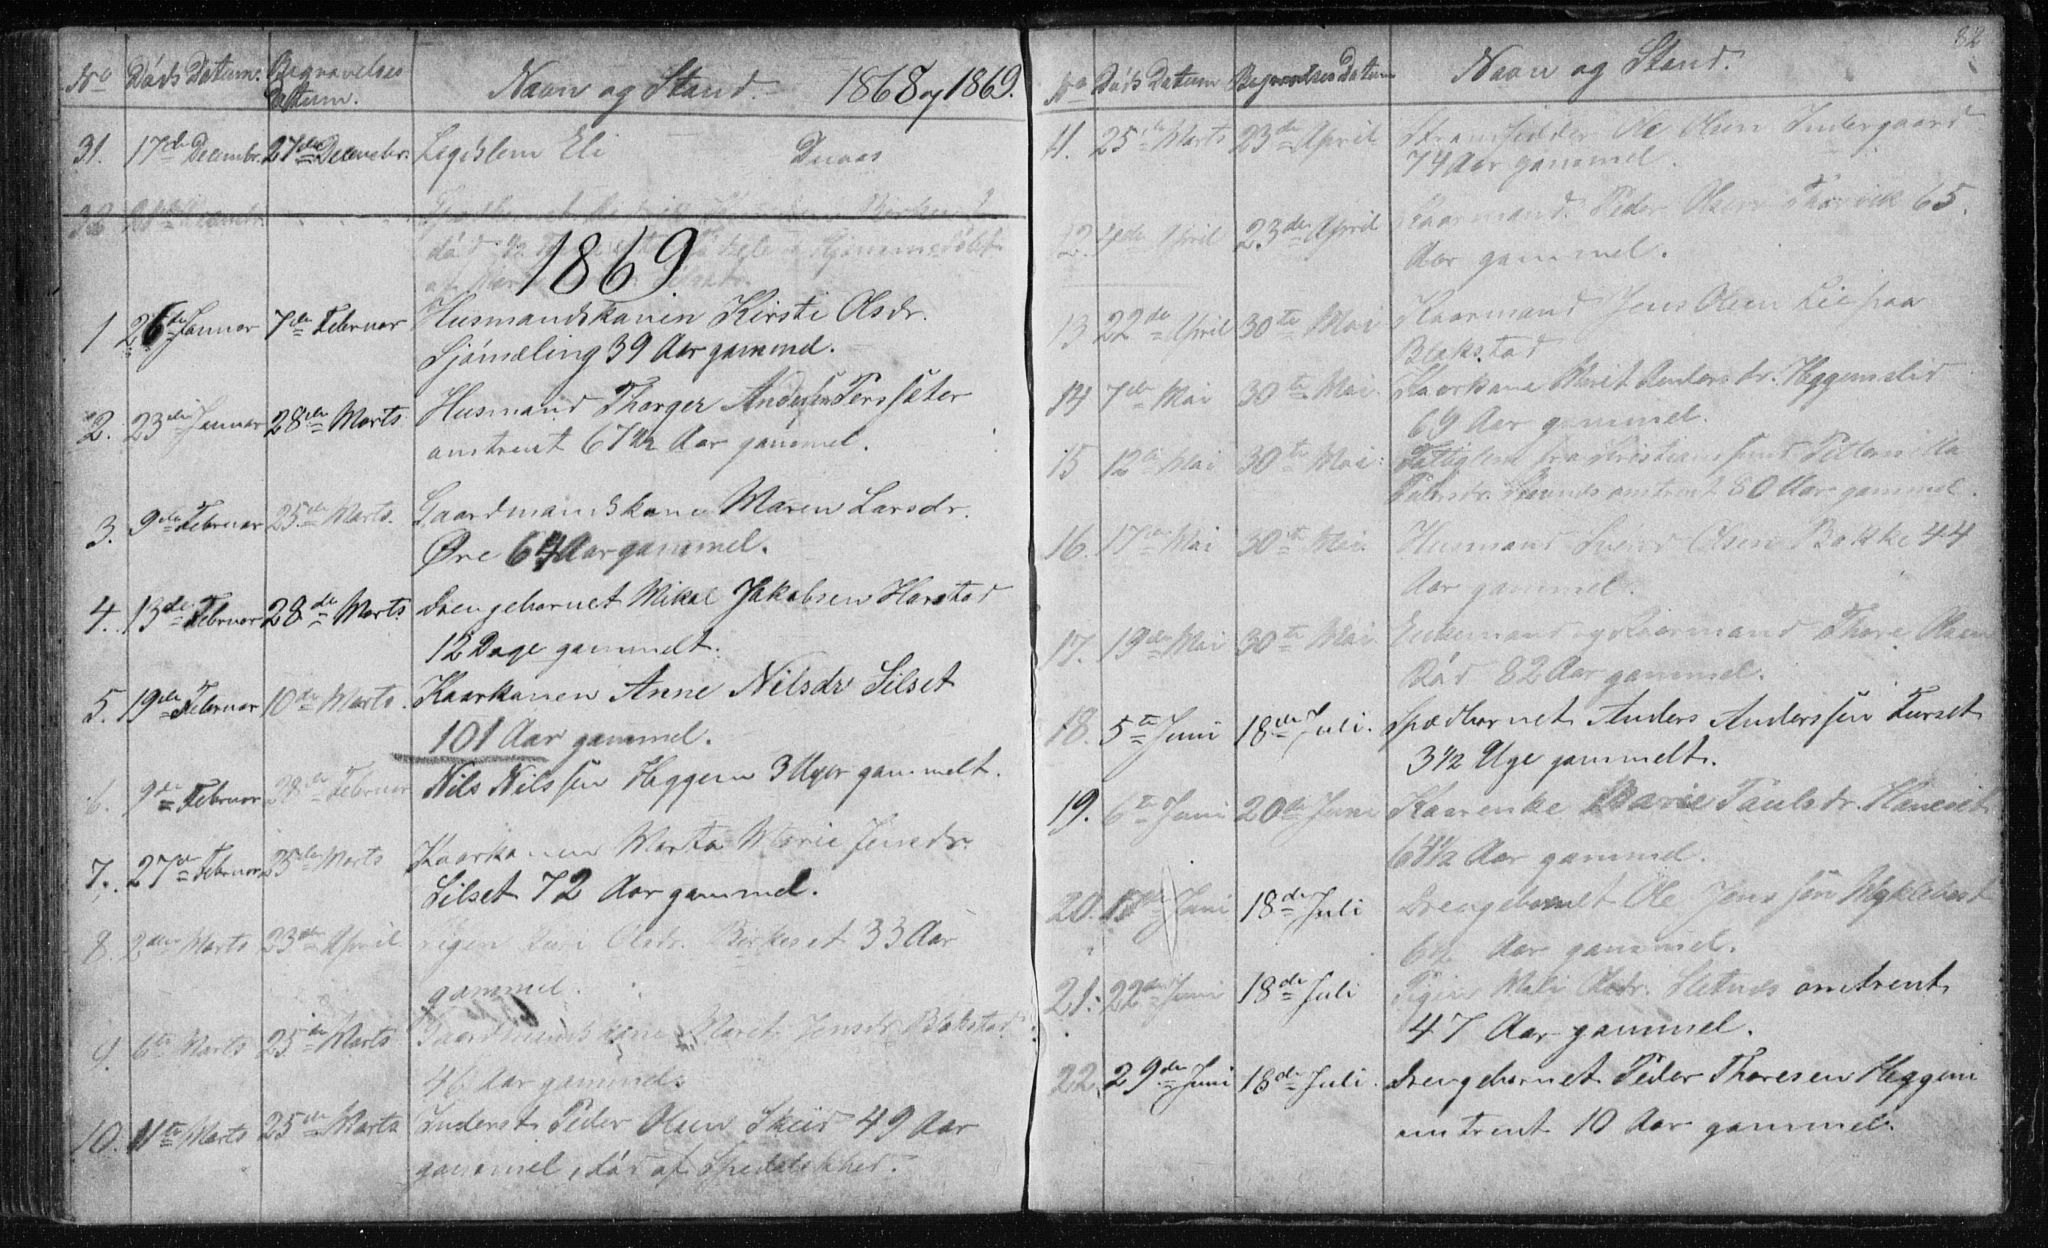 No Døds Datum. Begravelses Datum. Navn og Stand. 1868 og 1869.
31. 17de Decembr. 27de Decembr. Legdslem Eli Duaas
32
1869.
1 26de Januar 7de Februar Husmandskonen Kirsti Olsdr.
Sjømæling 39 Aar gammel.
2. 23de Januar 28de Marts Husmand Thorger Anderssen Persæter
omtrent 67 1/2 Aar gammel.
3. 9de Februar 25de Marts. Gaardmandskone Maren Larsdr.
Øre 64 Aar gammel.
4. 13de Februar 28de Marts Drengebarnet Mikal Jakobsen Harstad
12 Dage gammelt.
5. 19de Februar 10de Marts. Kaarkonen Anne Nilsdr Silset
101 Aar gammel.
6. 9de Februar 28de Februar Nils Nilssen Heggem 3 Uger gammelt.
7. 27de Februar 25de Marts Kaarkonen Marta Marie Jensdr.
Silset 72 Aar gammel.
8. 2den Marts 23de April Pigen Guri Olsdr. Birkeset 33 Aar
gammel.
9. 6te Marts 25de Marts Gaardmandskone Marit Jensdr. Blakstad
46 Aar gammel.
10. 11te Marts 25de Marts Inderst Peder Olsen Skeid 49 Aar
gammel, død af Spedalskhed.
82
No Døds Datum Begravelses Datum Navn og Stand.
11. 25de Marts 23de April Strandsidder Ole Olsen Indergaard
74 Aar gammel.
12. 4de April 23de April Kaarmand Peder Olsen Thorvik 65
Aar gammel.
13 22de April 30te Mai Kaarmand Jens Olsen Lie paa
Blakstad
14 7de Mai 30te Mai. Kaarkone Marit Andersdr. Heggemslid
69 Aar gammel.
15 12te Mai 30te Mai. Fatiglem fra Kristianssund Petternilla
omtrent 80 Aar gammel.
16. 17de Mai 30te Mai. Husmand Svend Olsen Bakke 44
Aar gammel.
17. 19de Mai 30te Mai Enkemand og Kaarmand Thore Olsen
Rød 82 Aar gammel.
18. 5te Juni 18de Juli. Spædbarnet Anders Anderssen Furset
3 1/2 Uge gammelt.
19. 6te Juni 20de Juni Kaarenke Marie Paulsdr. Hanesæt
64 1/2 Aar gammel.
20. 17de Juni 18de Juli Drengebarnet Ole Jenssen Myklebust
6 1/2 Aar gammel.
21. 22de Juni 18de Juli Pigen Mali Olsdr. Sletnes omtrent
47 Aar gammel.
22. 29de Juni 18de Juli. Drengebarnet Peder Thoresen Heggem
omtrent 10 Aar gammel.